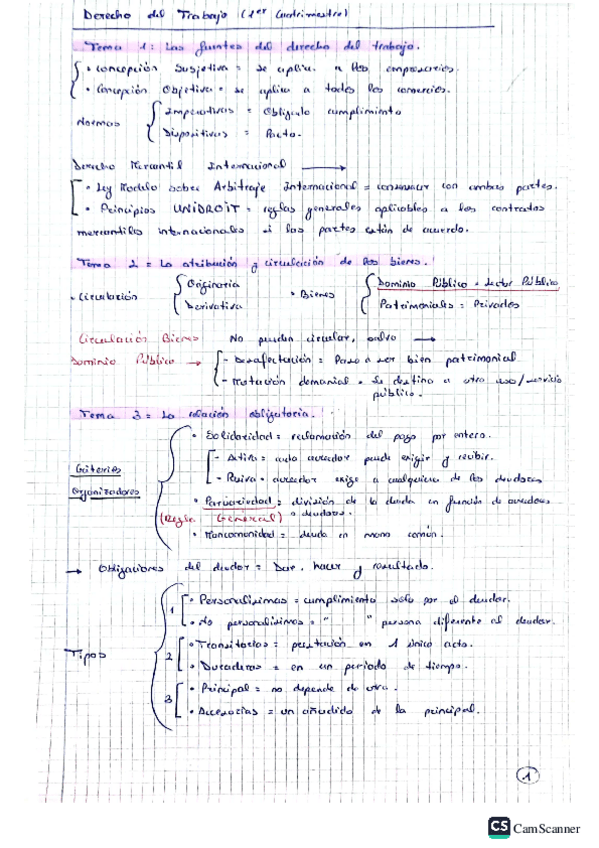 Derecho del Trabajo (1er Cuatrimestre)
Tema 1: Las fuentes del derecho del trabajo.
• Concepción Subjetiva = se aplica a los empresarios.
• Concepción Objetiva = se aplica a todos los comercios.
Normas
Imperativas = Obligado cumplimiento
Dispositivas = Pacto.
Derecho Mercantil Internacional →
• Ley Modelo sobre Arbitraje Internacional = consensuar con ambas partes.
• Principios UNIDROIT = reglas generales aplicables a los contratos
mercantiles internacionales si las partes están de acuerdo.
Tema 2 = La atribución y circulación de los bienes.
• Circulación
Originaria
Derivativa
• Bienes
Dominio Público = Sector Público
Patrimoniales = Privados
Circulación Bienes
Dominio Público →
No pueden circular, salvo →
- Desafectación = Pasa a ser bien patrimonial
- Mutación demanial = Se destina a otro uso/servicio
público.
Tema 3 = La relación obligatoria.
Criterios
Organizadores
• Solidaridad = reclamación del pago por entero.
- Activa = cada acreedor puede exigir y recibir.
- Pasiva = acreedor exige a cualquiera de los deudores
• Parciariedad = división de la deuda en función de acreedores
(Regla General) o deudores.
• Mancomunidad = deuda en mano común.
→ Obligaciones del deudor = Dar, hacer y resultado.
Tipos
1
• Personalísimas = cumplimiento solo por el deudor.
• No personalísimas = " " persona diferente al deudor.
2
• Transitorias = prestación en 1 único acto.
• Duraderas = en un periodo de tiempo.
3
• Principal = no depende de otra.
• Accesorias = un añadido de la principal.
1
CS CamScanner